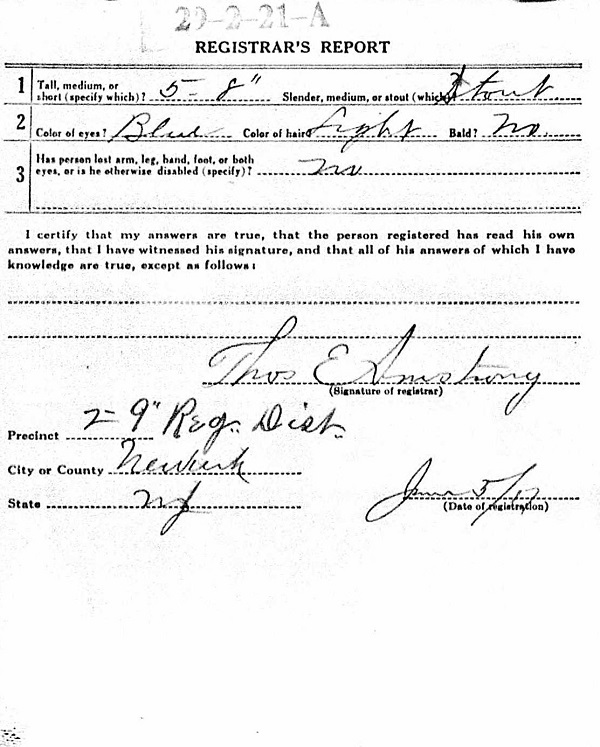 29-2-21-A
REGISTRAR'S REPORT
1 Tall, medium, or short (specify which)? 5- 8" Slender, medium, or stout (which)? Stout
2 Color of eyes? Blue Color of hair? Light Bald? No
3 Has person lost arm, leg, hand, foot, or both eyes, or is he otherwise disabled (specify)? no
I certify that my answers are true, that the person registered has read his own
answers, that I have witnessed his signature, and that all of his answers of which I have
knowledge are true, except as follows:
Thos E Armstrong
(Signature of registrar)
Precinct 2-9" Reg. Dist.
City or County Newark
State NJ
June 5/17
(Date of registration)